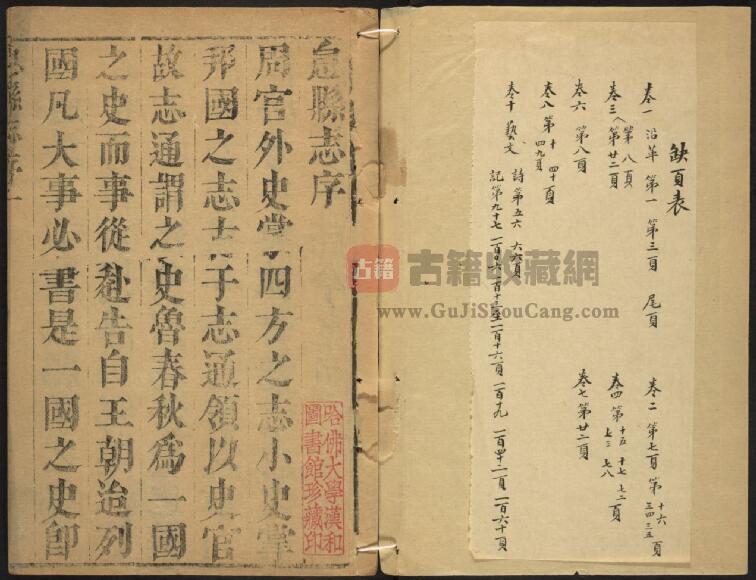 缺頁表
卷一 沿革 第一 第三頁 尾頁
卷二 第七頁 第十六 三四 三五頁
卷三 第八頁 第廿三頁
卷四 第十五 十七 七二 七三 七八頁
卷六 第八頁
卷七 第廿二頁
卷八 第十 四十頁 四九頁
卷十 藝文 詩第五六 六六頁
記第九十七
息縣志序
周官外史掌四方之志小史掌
邦國之志 子志通領以史官
故志通謂之史魯春秋爲一國
之史而事從赴告自王朝迨列
國凡大事必書是一國之史卽
息縣志序 一
哈佛大學漢和
圖書館珍藏印
古籍 古籍收藏網
www.GuJiShouCang.com